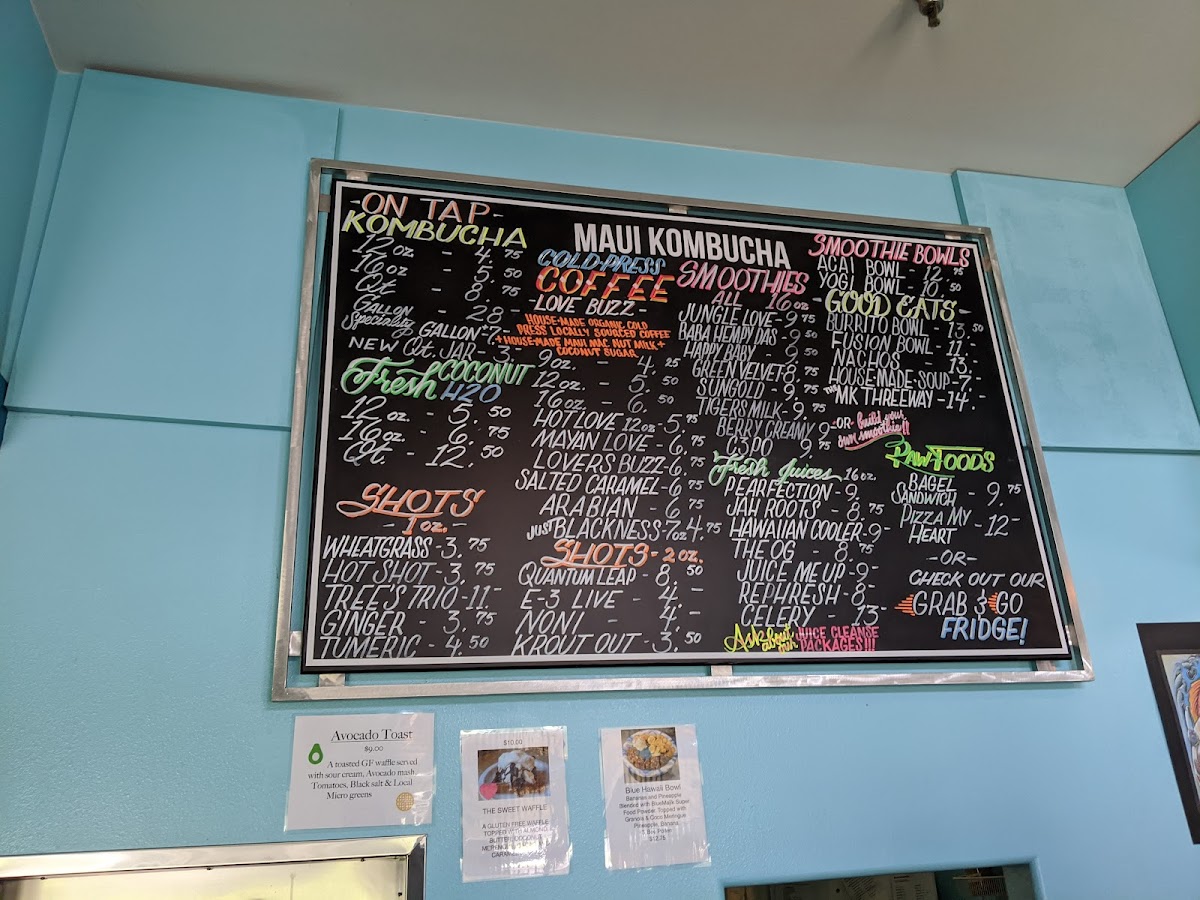 -ON TAP-
KOMBUCHA
12 oz - 4.75
16 oz - 5.50
Qt - 8.75
GALLON - 28-
Speciality GALLON + 7-
NEW Qt. JAR - 3.-
Fresh COCONUT H2O
12 oz. - 5.50
16 oz. - 6.75
Qt. - 12.50
SHOTS
- 1 oz. -
WHEATGRASS - 3.75
HOT SHOT - 3.75
TREE'S TRIO - 11-
GINGER - 3.75
TUMERIC - 4.50
MAUI KOMBUCHA
COLD-PRESS
COFFEE
-LOVE BUZZ-
HOUSE-MADE ORGANIC COLD
PRESS LOCALLY SOURCED COFFEE
+ HOUSE-MADE MAUI MAC NUT MILK +
COCONUT SUGAR
9 oz. - 4.25
12 oz. - 5.50
16 oz. - 6.50
HOT LOVE 12 oz - 5.75
MAYAN LOVE - 6.75
LOVERS BUZZ - 6.75
SALTED CARAMEL - 6.75
ARABIAN - 6.75
JUST BLACKNESS - 7oz 4.75
SHOTS - 2 oz.
QUANTUM LEAP - 8.50
E-3 LIVE - 4.-
NONI - 4.-
KROUT OUT - 3.50
SMOOTHIES
ALL 16 oz
JUNGLE LOVE - 9.75
BABA HEMPY DAS - 9.50
HAPPY BABY - 9.50
GREEN VELVET 8.75
SUNGOLD - 9.75
TIGERS MILK - 9.75
BERRY CREAMY 9-
C3PO 9.75
-OR- build your own smoothie!!
Fresh Juices 16 oz.
PEARFECTION - 9.
JAH ROOTS - 8.75
HAWAIIAN COOLER - 9-
THE OG - 8.75
JUICE ME UP - 9-
REPHRESH - 8-
CELERY - 13-
Ask about our JUICE CLEANSE PACKAGES!!!
SMOOTHIE BOWLS
ACAI BOWL - 12.75
YOGI BOWL - 10.50
-GOOD EATS-
BURRITO BOWL - 13.50
FUSION BOWL - 11.-
NACHOS - 13.-
HOUSE MADE SOUP - 7.-
THE MK THREEWAY - 14.-
RAW FOODS
BAGEL
SANDWICH - 9.75
PIZZA MY
HEART - 12-
-OR-
CHECK OUT OUR
GRAB & GO
FRIDGE!
Avocado Toast
$9.00
A toasted GF waffle served
with sour cream, Avocado mash,
Tomatoes, Black salt & Local
Micro greens
$10.00
THE SWEET WAFFLE
A GLUTEN FREE WAFFLE
TOPPED WITH ALMOND
BUTTER, COCONUT
Blue Hawaii Bowl
Bananas and Pineapple
Blended with BlueMajik Super
Food Powder. Topped with
Granola & Coco Meringue
Pineapple, Banana,
Bee Pollen
$12.75